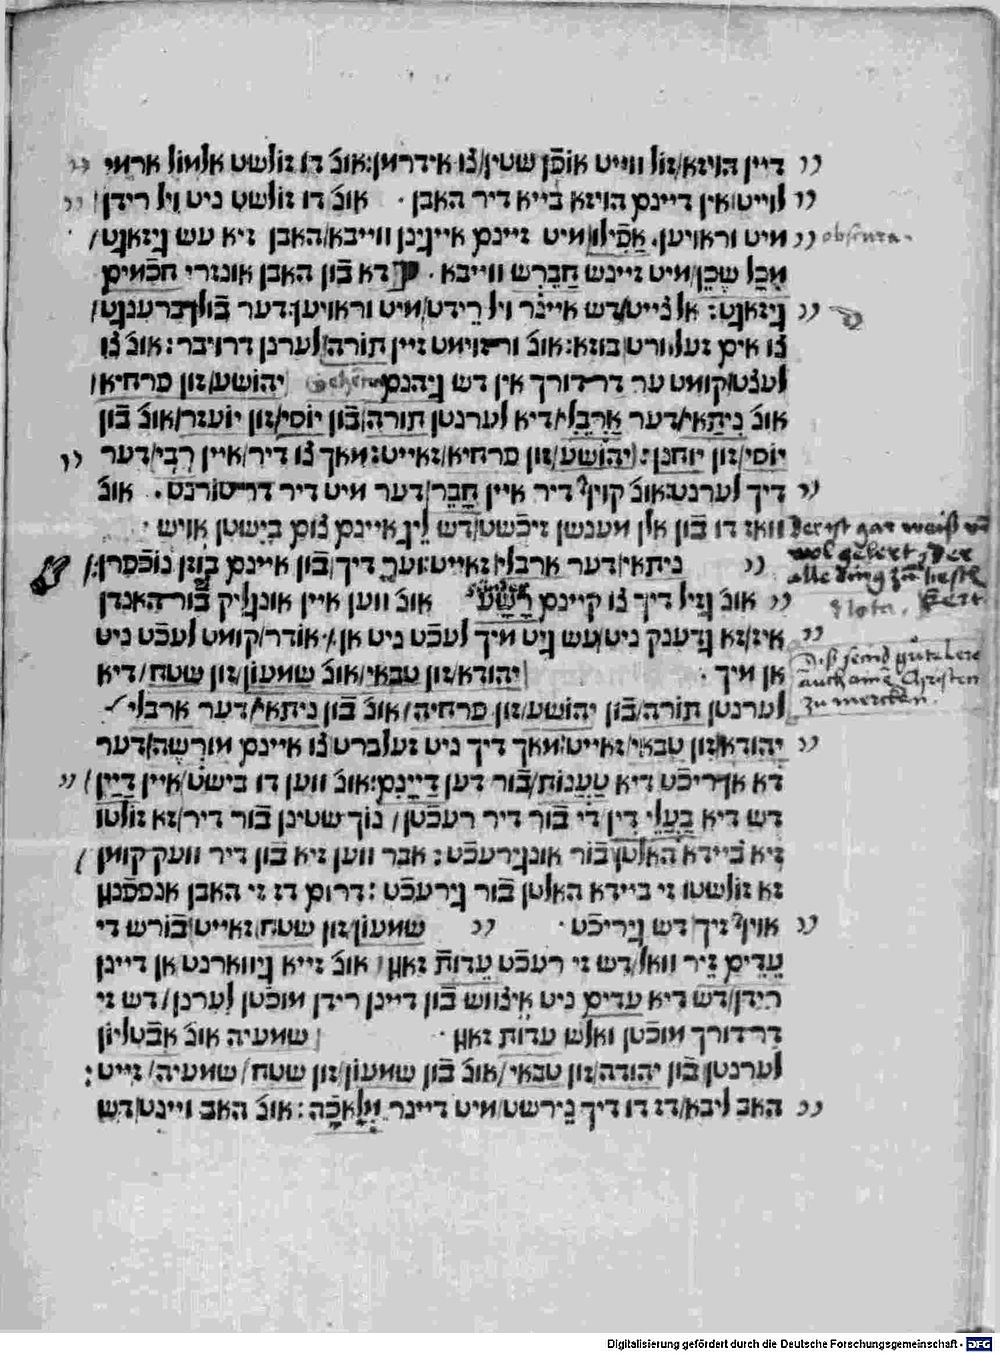 דיין הויזא/זול ווייט אופן שטין/צו אידרמן:אונ̄ דו זולשט אלמול ארמי
לוייט/אין דיינם הויזא בייא דיר האבן · אונ̄ דו זולשט ניט ויל רידן/
מיט וראויען· אֲפִילוּ/מיט זיינם אייגינן ווייבא/האבן זיא עש גיזאגט/ obscura.
מִכָּל שֶכֵּן/מיט זיינש חֲבֵרש ווייבא · דא בֿון האבן אונזרי חכמים
גיזאגט: אלצייט/דש איינר ויל רֵידט/מיט וראויען:דער בֿולברענגט/
צו אים זעלוורט בוזא:אונ̄ ורזוימט זיין תורה/לערנן דרויבר: אונ̄ צו
לעצט/קומט ער דרדורך אין דש גיהנם יהושע/זון פרחיא/
אונ̄ נִיתַאי/דער אַרְבֵלִי/דיא לערנטן תורה/בֿון יוסי/זון יועזר/אונ̄ בֿון
יוסי/זון יוחנן: יהושע/זון פרחיא/זאייט:מאך צו דיר/איין רבי/דער
דיך לערנט:אונ̄ קויף דיר איין חָבֵר/דער מיט דיר דרפורנט. אונ̄
וואז דו בֿון אלן מענשן זיכשט/דש ליג איינם צום בישטן אויש · Der ist gar weiß
wol gelert, der
ניתאי/דער ארבלי/זאייט:וער דיך/בֿון איינם בוזן נוכפרן/: alle ding zum besten kert
אונ̄ גזיל דיך צו קיינם רָשָע אונ̄ ווען איין אונגליק בֿורהאנדן Nota.
איז/זא גדענק ניט/עש גיט מיך לעכט ניט אן/ אודר/קומט לעכט ניט
אן מיך · יהודא/זון טבאי/אונ̄ שמעון/זון שטח/דיא Diß send gute lere
auch aim Christen
לערנטן תורה/בֿון יהושע/זון פרחיה/אונ̄ בֿון ניתאי/דער ארבלי zu mercken.
יהודא/זון טבאי/זאייט:מאך דיך ניט זעלברט צו איינם מורשה/דער
דא אךריכט דיא טַעֲנוֹת/בֿור דען דַיָינִים:אונ̄ ווען דו בישט/איין דַיָין/
דש דיא בַעֲלֵי דִין די בֿור דיר רעכטן/ נוך שטינן בֿור דיר/זא זולטו
זיא ביידא האלטן בֿור אונגירעכט: אבר ווען זיא בֿון דיר וועק קומן/
זא זולשטו זי ביידא האלטן בֿור גירעכט: דרום דז זי האבן אנפפנגן
אויף זיך דש גיריכט · שמעון/זון שטח/זאייט:בֿורש די
עֵדִים זיר וואל/דש זי רעכט עֵדות זאגן/ אונ̄ זייא גיווארנט אן דיינן
רידן/דש דיא עדים ניט איצווש בֿון דיינן רידן מוכטן לערנן/דש זי
דרדורך מוכטן ואלש עדות זאגן · שמעיה אונ̄ אבטליון
לערנטן בֿון יהודה/זון טבאי/אונ̄ בֿון שמעון/זון שטח/שמעיה/זייט:
האב ליבא/דז דו דיך נירשט/מיט דיינר מְלָאכָה: אונ̄ האב וויינט/דש
Digitalisierung gefördert durch die Deutsche Forschungsgemeinschaft - DFG